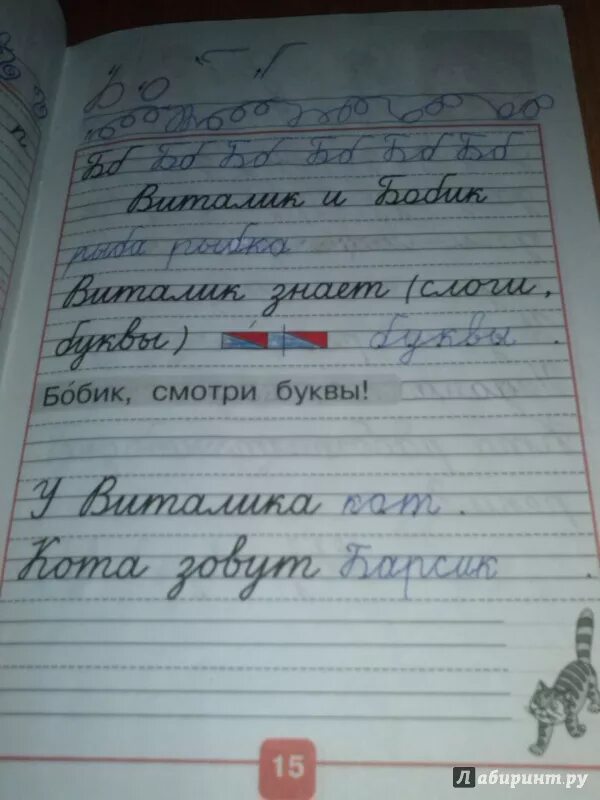 Б о
п
Бб Бб Бб Бб Бб Бб
Виталик и Бобик
рыба рыбка
Виталик знает (слоги,
буквы) буквы .
Бо́бик, смотри буквы!
У Виталика кот .
Кота зовут Барсик .
15
Лабиринт.ру